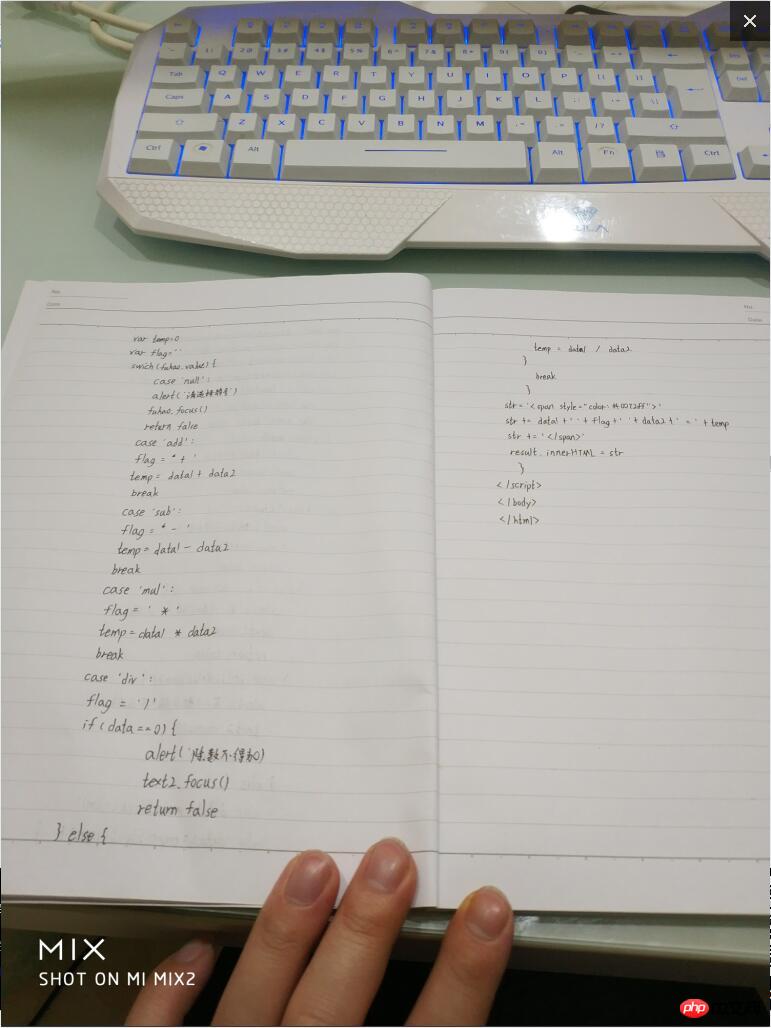 Tab Q W E R T Y U I O P
Caps A S D F G H J K L
Z X C V B N M
Ctrl Alt Alt Fn Ctrl
Ins
Del
No.
Date
var temp=0
var flag=''
swich(fuhao.value){
case 'null':
alert('请选择符号')
fuhao.focus()
return false
case 'add':
flag = ' + '
temp = data1 + data2
break
case 'sub':
flag = ' - '
temp = data1 - data2
break
case 'mul':
flag = ' * '
temp = data1 * data2
break
case 'div':
flag = ' / '
if (data == 0) {
alert('除数不得为0)
text2.focus()
return false
} else {
No.
Date
temp = data1 / data2
}
break
}
str = '<span style="color: #0072ff">'
str += data1 + ' ' + flag + ' ' + data2 + ' = ' + temp
str += '</span>'
result.innerHTML = str
}
</script>
</body>
</html>
MIX
SHOT ON MI MIX2
php